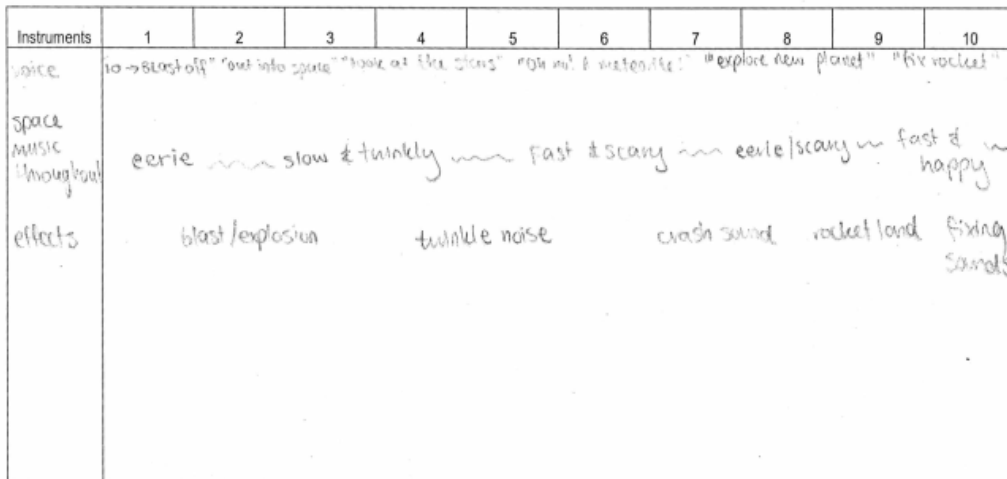 Instruments 1 2 3 4 5 6 7 8 9 10
voice 10→Blast off" "out into space" "look at the stars" "Oh no! A meteorite!" "explore new planet" "fix rocket"
space
music
throughout
eerie slow & twinkly Fast & scary eerie/scary fast &
happy
effects blast/explosion twinkle noise crash sound rocket land fixing
sounds